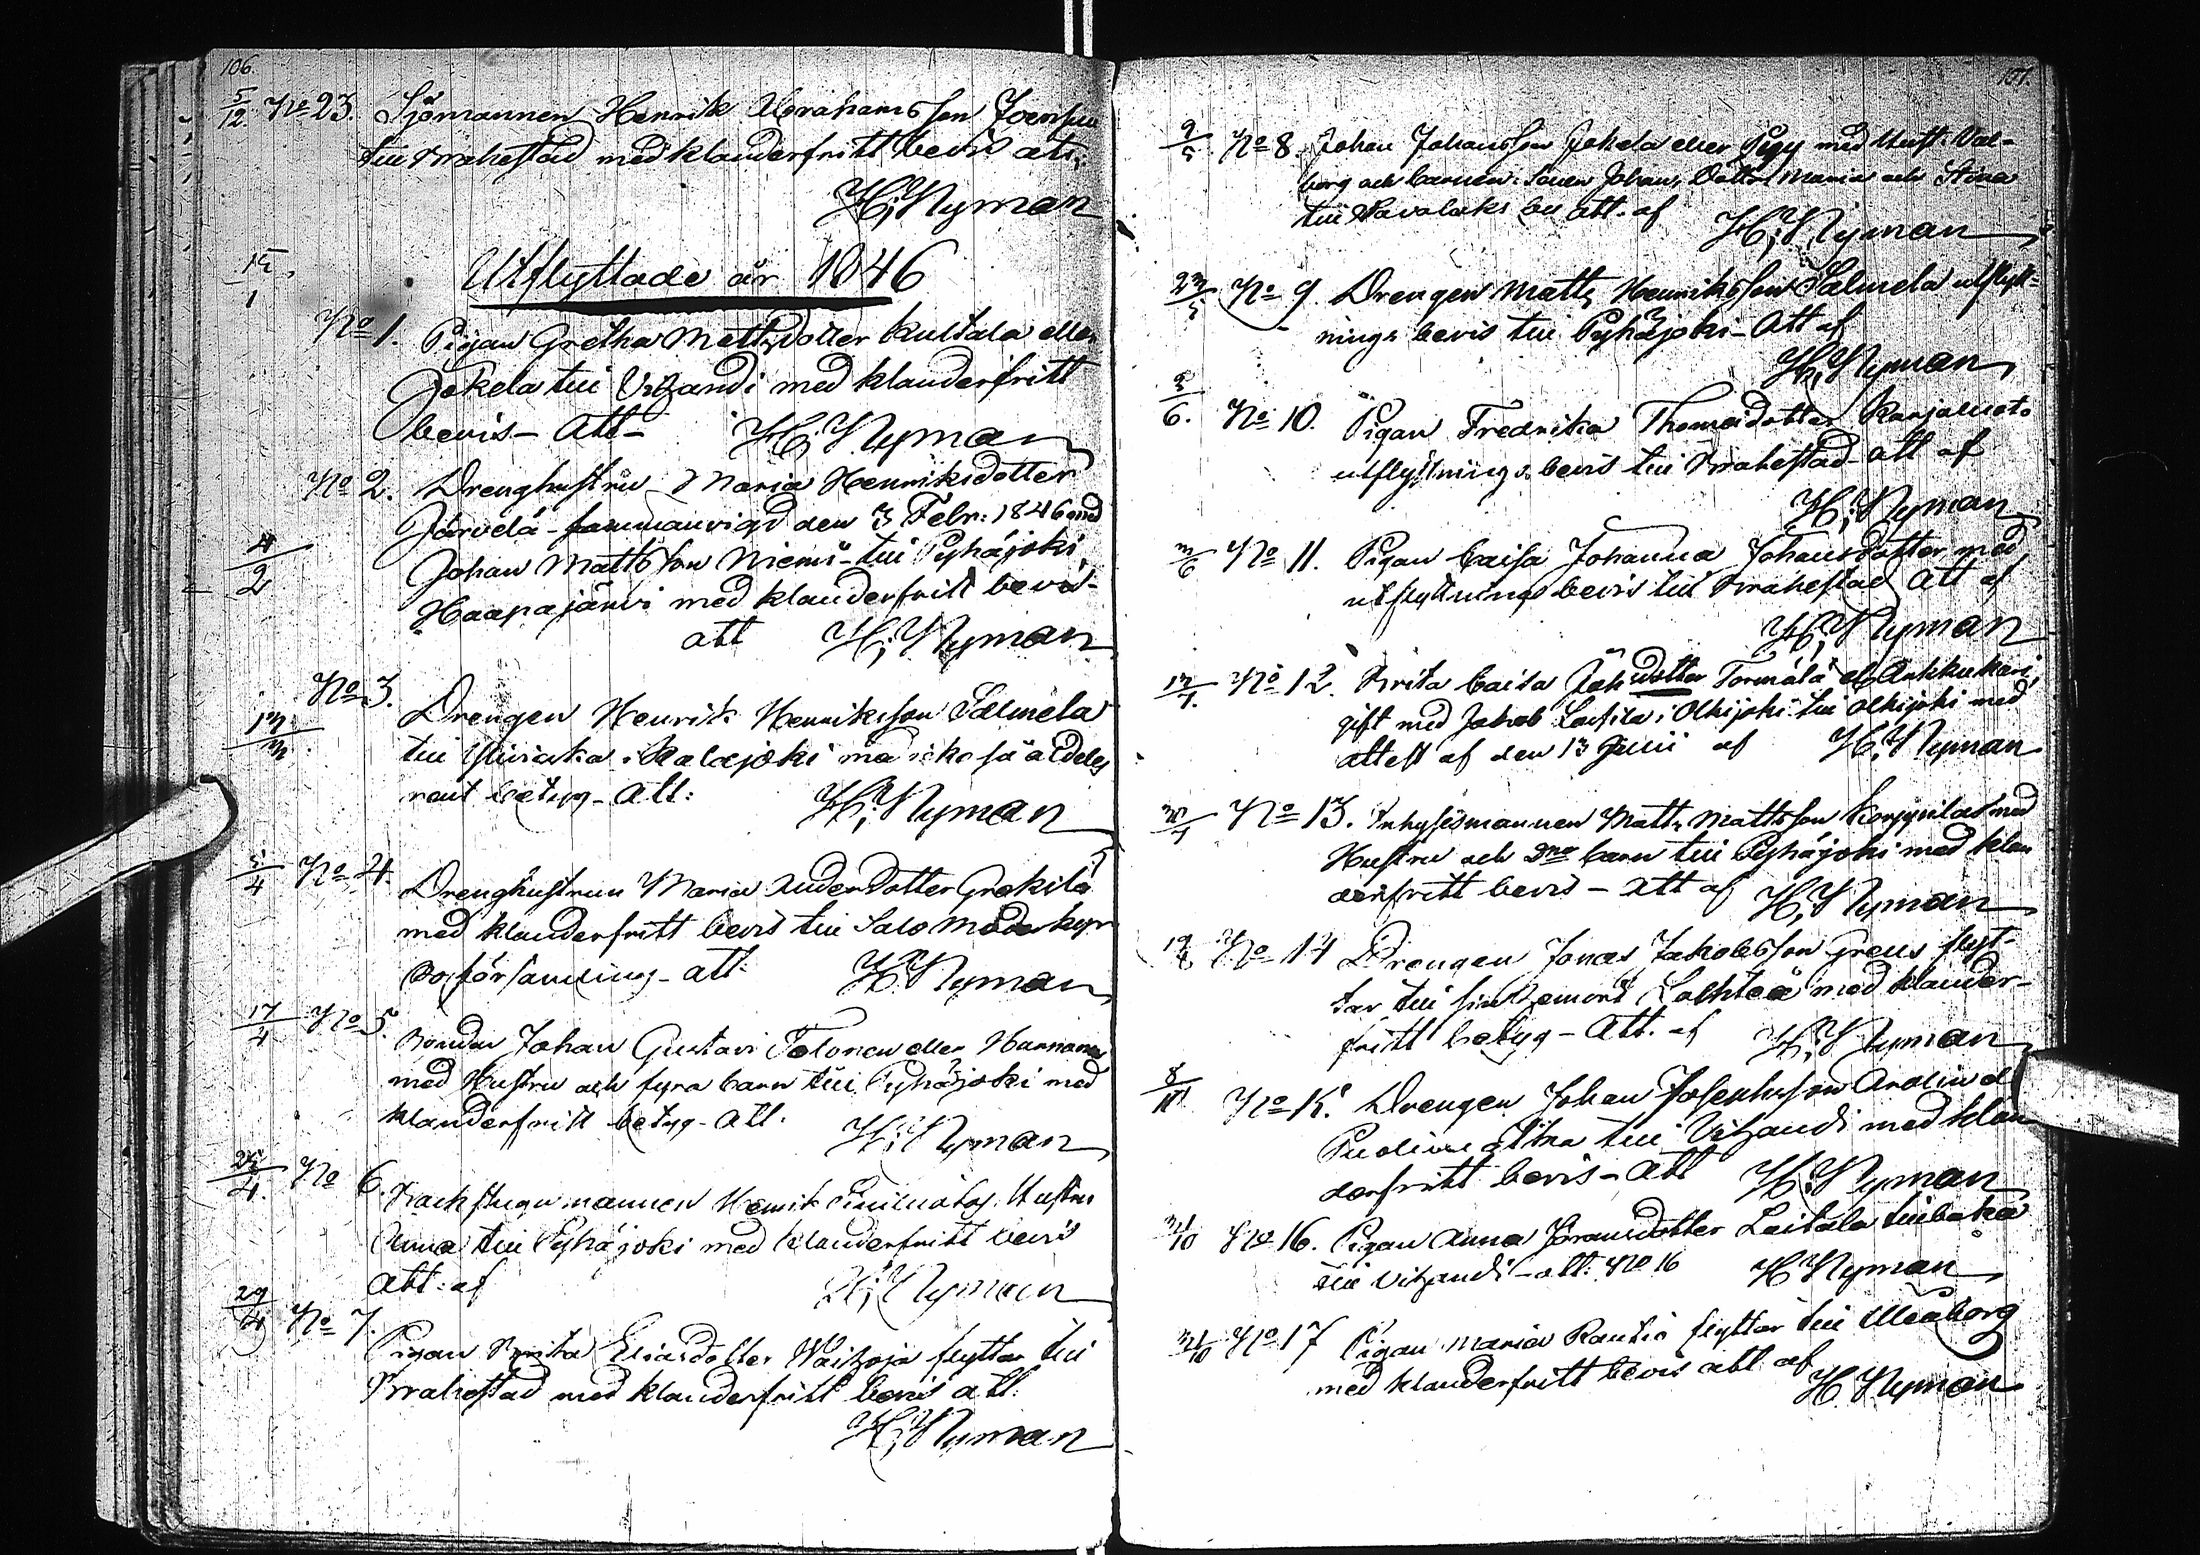 106.
5/12. No 23. Sjömannen Henrik Abrahamsson Joensuu
till Brahestad med klanderfritt bevis att:
H; Nyman
Utflyttade år 1846
15/1
No 1. Pigan Gretha Mattsdotter Kultala eller
Jokela till Vihandi med klanderfritt
bevis - Att - H; Nyman
No 2. Drenghustru Maria Henriksdotter
Järvelä - sammanvigd den 3 Febr: 1846 med
4/2 Johan Mattsson Niemi - till Pyhäjoki
Haapajärvi med klanderfritt bevis -
att H; Nyman
No 3.
13/3 Drengen Henrik Henriksson Salmela
till Ylivieska i Kalajoki med icke så aldeles
rent betyg - Att: H; Nyman
5/4 No 4. Drenghustrun Maria Andersdotter Grekilä
med klanderfritt bevis till Salo Moderkyr
koförsamling - att: H; Nyman
17/4 No 5. Bonden Johan Gustav Tolonen eller Hannanen
med Hustru och fyra barn till Pyhäjoki med
klanderfritt betyg - Att: H; Nyman
25/4. No 6. Backstugumannen Henrik Hustru
Anna till Pyhäjoki med klanderfritt bevis
Att: af H; Nyman
29/4 No 7.
Pigan Brita Eliasdotter Waihoja flyttar till
Brahestad med klanderfritt bevis att:
H; Nyman
107.
9/5 No 8. Johan Johansson Jokela eller Pigg med Hust: Val-
borg och barnen: Sonen Johan, Dottr Maria och Stina
till Pavolaks by att. af H; Nyman
23/5 No 9. Drengen Matts Henriksson Salmela utflytt-
nings bevis till Pyhäjoki - Att af
H; Nyman
6. No 10. Pigan Fredrika Thomasdotter
utflyttnings bevis till Brahestad - att af
H; Nyman
3/6 No 11. Pigan Caisa Johanna Johansdotter med
utflyttnings bevis till Brahestad Att af
H; Nyman
13/7. No 12. Brita Caisa Johdotter Tormälä el. Ankkukari,
gift med Jakob Lassila i Olkijoki till Olkijoki med
attest af den 13 Julii af H; Nyman
No 13. Inhysismannen Matts Mattsson Korppilas med
Hustru och 2ne barn till Pyhäjoki med klan
derfritt bevis - Att af H; Nyman
No 14 Drengen Jonas Jakobsson Greus flyt-
tar till sin hemort Lochteå med klander-
fritt betyg - Att. af H; Nyman
8/10 No 15. Drengen Johan Josephsson Arolin el
till Vihandi med klan
derfritt bevis - Att H; Nyman
31/10 No 16. Pigan Anna Göransdotter Laitala tillbaka
till Vihandi - att: No 16 H Nyman
31/10 No 17 Pigan Maria Rautio flyttar till Uleåborg
med klanderfritt bevis att af
H Nyman